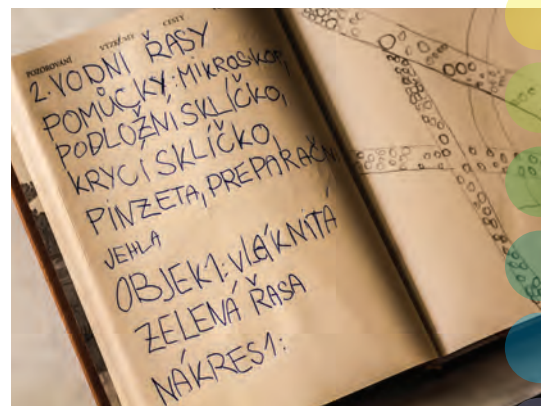 POZOROVÁNÍ VÝZKUMY CESTY
2. VODNÍ ŘASY
POMŮCKY: MIKROSKOP,
PODLOŽNÍ SKLÍČKO,
KRYCÍ SKLÍČKO,
PINZETA, PREPARAČNÍ
JEHLA
OBJEK1: VLÁKNITÁ
ZELENÁ ŘASA
NÁKRES1: